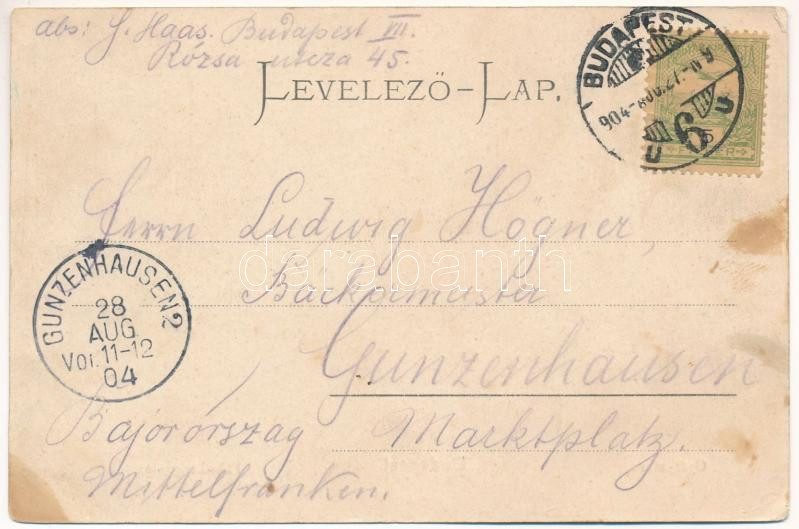 abs: H. Haas. Budapest VII.
Rózsa utcza 45.
LEVELEZŐ-LAP.
BUDAPEST
904 AUG. 27
6
U U
5
Herrn Ludwig Högner,
darabanth
Bäckermeister
Gunzenhausen
Marktplatz.
Bajorórszag
Mittelfranken.
GUNZENHAUSEN 2
28
AUG
Vor. 11-12
04